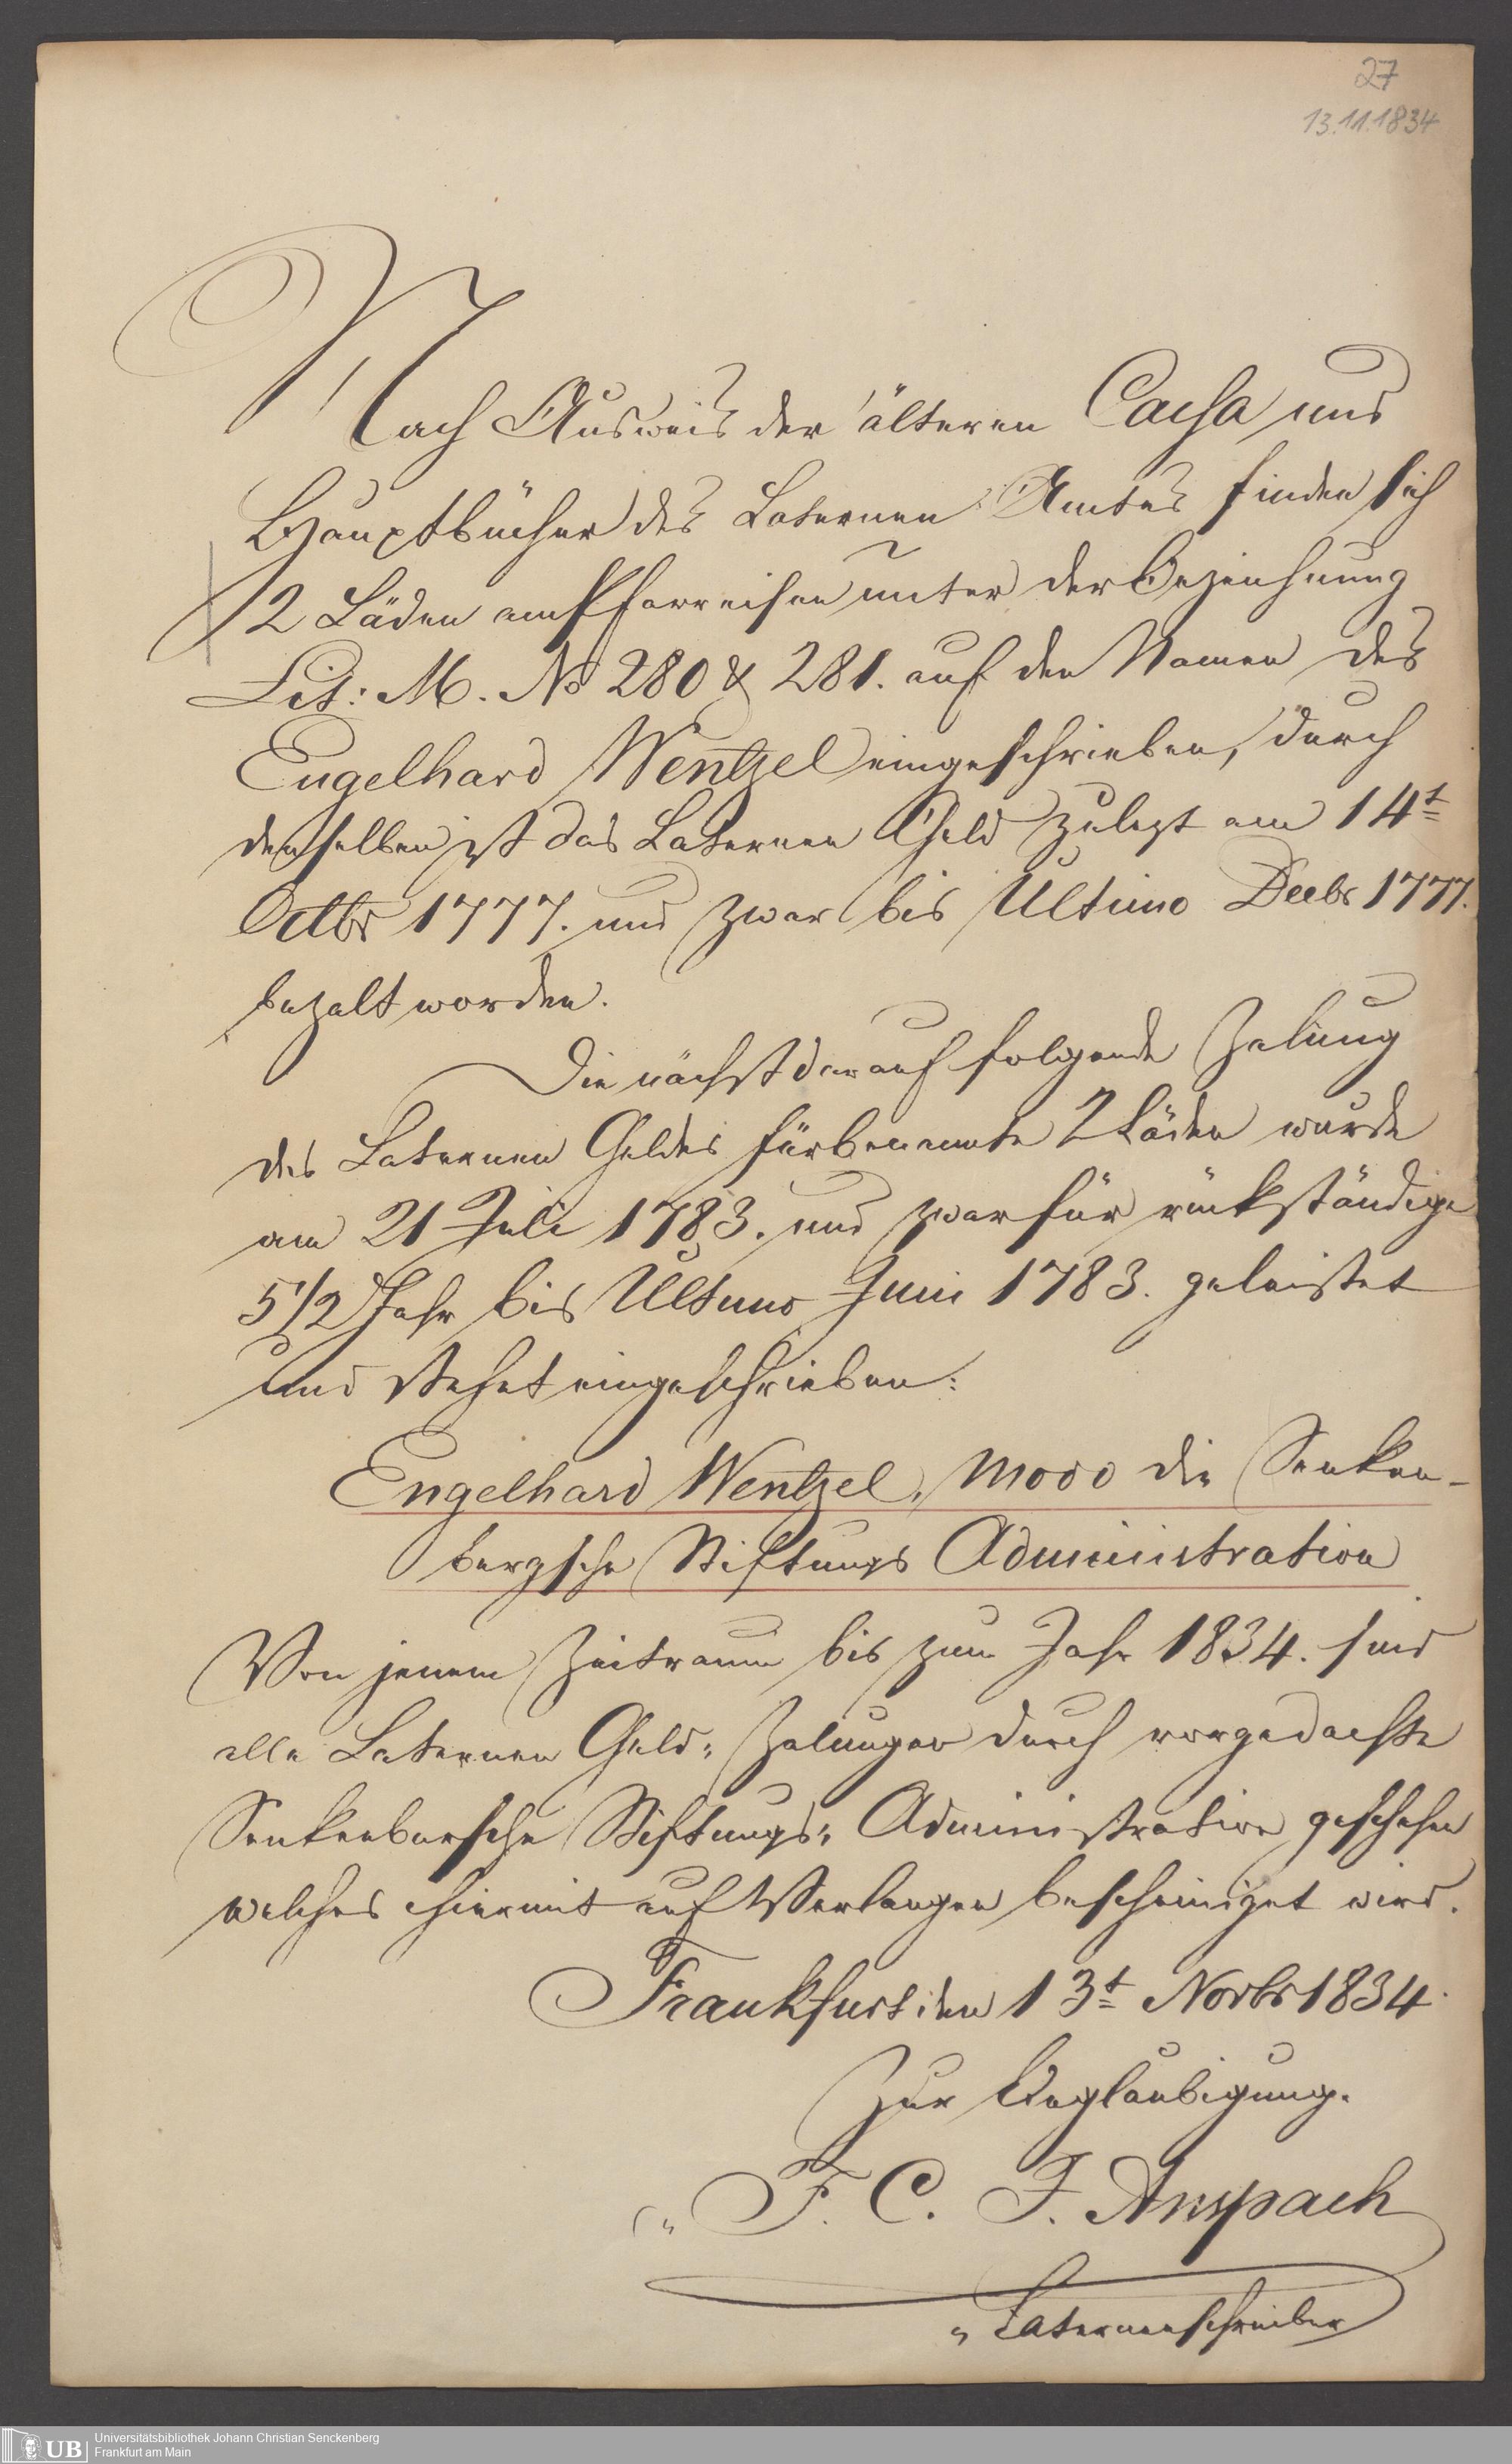 27
13.11.1834
Nach Ausweis der älteren Cassa und
Hauptbücher des Laternen Amtes finden sich
2 Läden am Pfarreisen unter der Bezeichnung
Lit: M. No 280 & 281. auf den Namen des
Engelhard Wentzel eingeschrieben, durch
denselben ist das Laternen Geld zulezt am 14t
Octbr 1777. und zwar bis Ultimo Decbr 1777.
bezalt worden.
Die nächst darauf folgende Zalung
des Laternen Geldes für benannte 2 Läden wurde
am 21 Juli 1783. und zwar für rückständige
5 1/2 Jahr bis Ultimo Juni 1783. geleistet
und stehet eingeschrieben:
Engelhard Wentzel, modo die Senken-
bergsche Stiftungs Administration
Von jenem Zeitraum bis zum Jahr 1834. sind
alle Laternen Geld: Zalungen durch vorgedachte
Senkenbersche Stiftungs: Administration geschehen
welches hiermit auf Verlangen bescheiniget wird.
Frankfurt den 13t Novbr 1834.
Zur Beglaubigung.
F. C. F. Anspach
Laternenschreiber
UB
Universitätsbibliothek Johann Christian Senckenberg
Frankfurt am Main